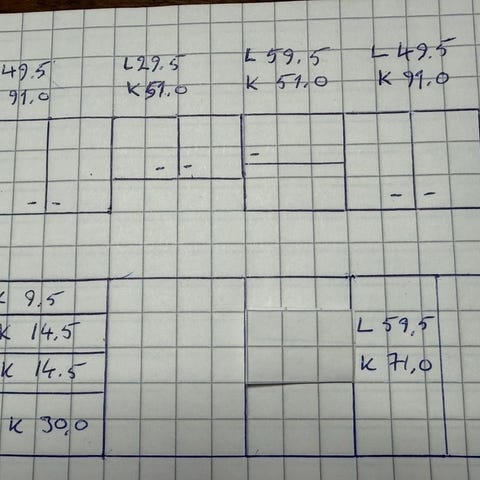 49.5
91.0
L29.5
K51.0
L 59.5
K 51.0
L 49.5
K 91.0
K 9.5
K 14.5
K 14.5
K 30.0
L 59.5
K 71.0